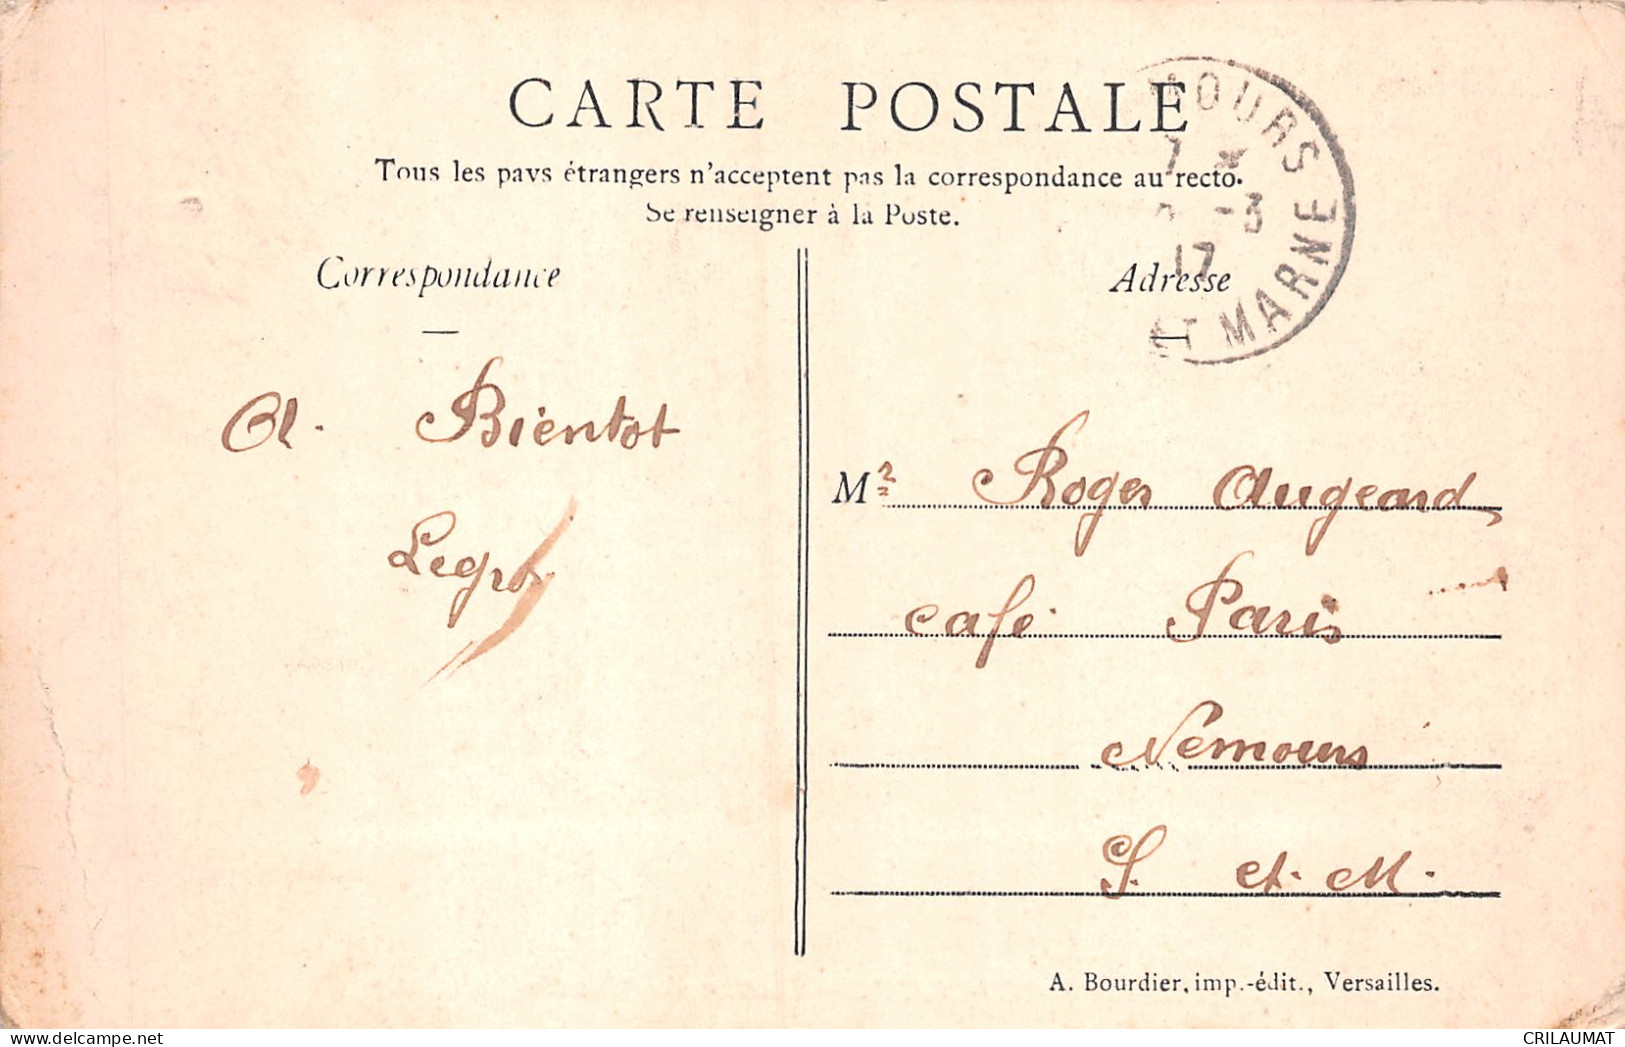 CARTE POSTALE
Tous les pays étrangers n'acceptent pas la correspondance au recto.
Se renseigner à la Poste.
Correspondance
A. Bientot
Legros
Adresse
Mr Roger Augeard
café Paris
Nemours
S. et. M.
MOURS
7 *
-3
17
ET MARNE
A. Bourdier, imp.-édit., Versailles.
CRILAUMAT